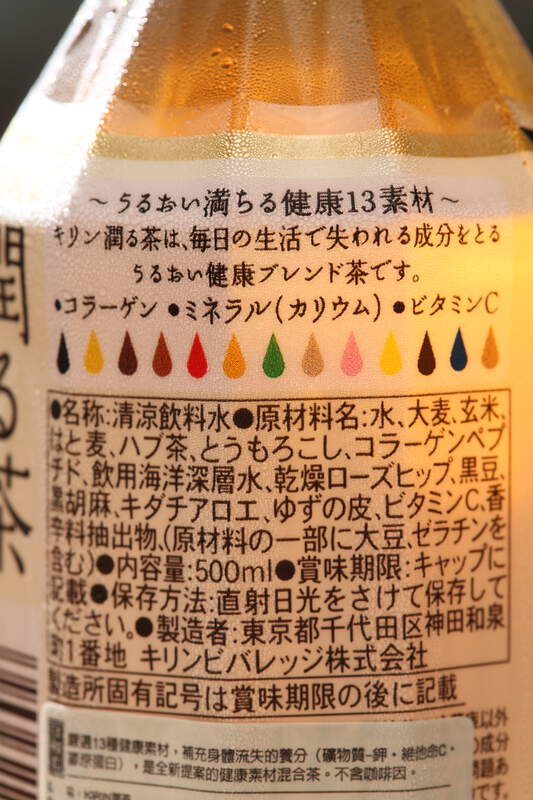 ～うるおい満ちる健康13素材～
キリン潤る茶は、毎日の生活で失われる成分をとる
うるおい健康ブレンド茶です。
●コラーゲン ●ミネラル(カリウム) ●ビタミンC
潤る茶
●名称:清涼飲料水●原材料名:水、大麦、玄米、
はと麦、ハブ茶、とうもろこし、コラーゲンペプ
チド、飲用海洋深層水、乾燥ローズヒップ、黒豆、
黒胡麻、キダチアロエ、ゆずの皮、ビタミンC、香
辛料抽出物、(原材料の一部に大豆、ゼラチンを
含む)●内容量:500ml●賞味期限:キャップに
記載●保存方法:直射日光をさけて保存して
ください。●製造者:東京都千代田区神田和泉
町1番地 キリンビバレッジ株式会社
製造所固有記号は賞味期限の後に記載
嚴選13種健康素材，補充身體流失的養分（礦物質-鉀・維他命C・
膠原蛋白），是全新提案的健康素材混合茶。不含咖啡因。
以外
の成分
問題あ
です。